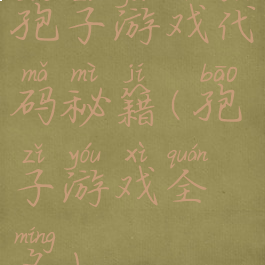 孢子游戏代
mǎ mì jí bāo
码秘籍(孢
zǐ yóu xì quán
子游戏全
míng